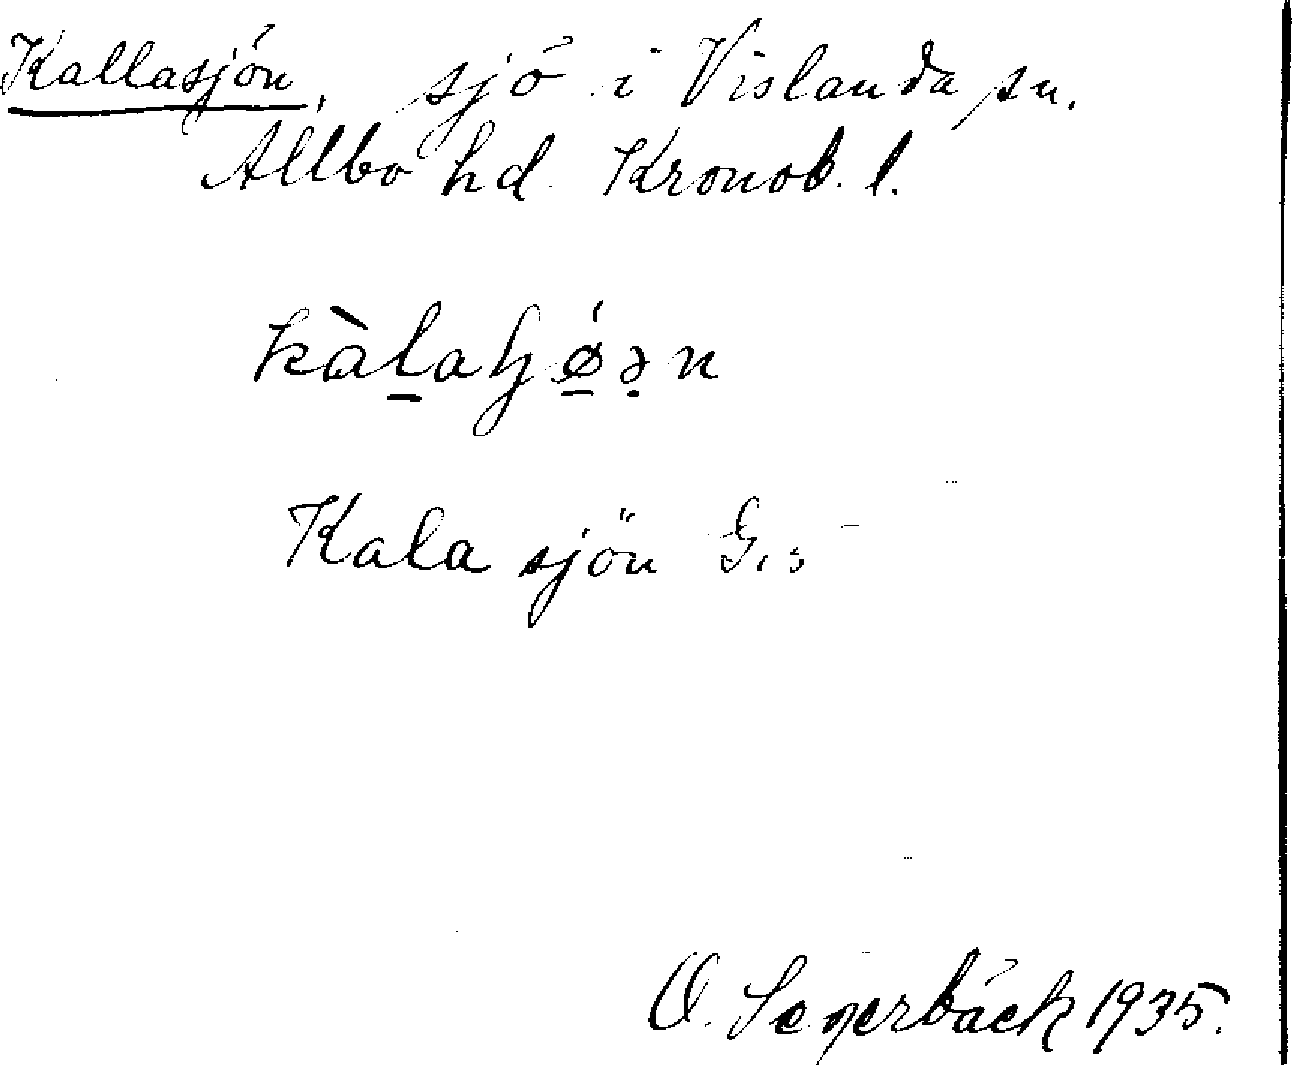 Kallasjön, sjö i Vislanda sn.
Allbo hd. Kronob. l.
kàl̲aɧǿ̲ə̣n
Kala sjön G.s
O. Segerbäck 1935.